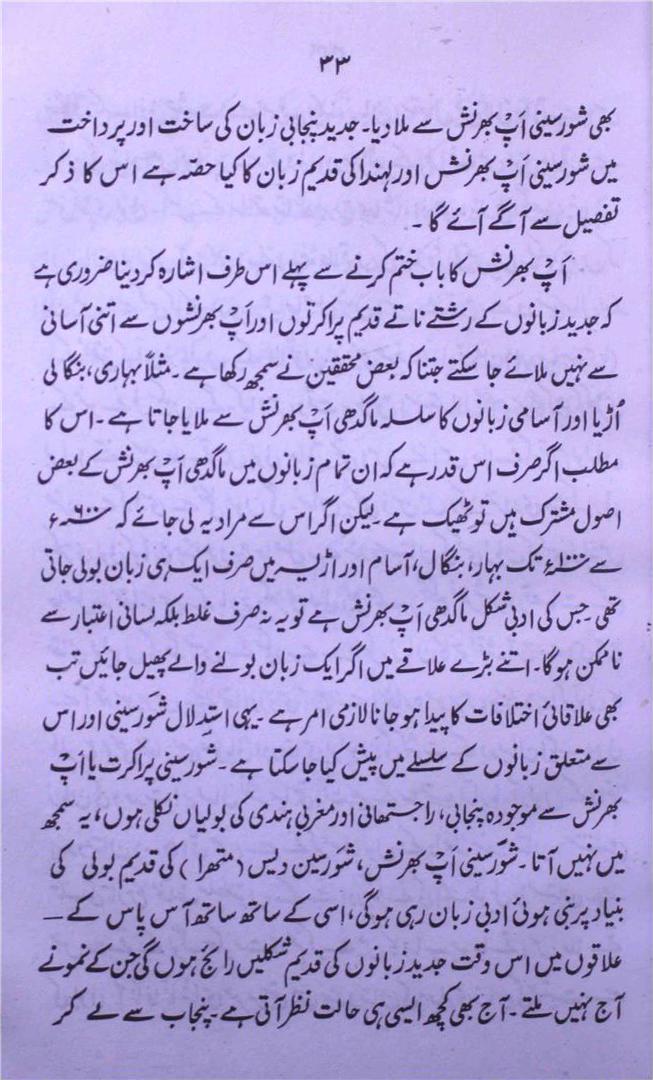 ۳۳
بھی شورسینی اَپ بھرنش سے ملا دیا۔ جدید پنجابی زبان کی ساخت اور پرداخت
میں شورسینی اَپ بھرنش اور لہندا کی قدیم زبان کا کیا حصّہ ہے اس کا ذکر
تفصیل سے آگے آئے گا ۔
اَپ بھرنش کا باب ختم کرنے سے پہلے اس طرف اشارہ کر دینا ضروری ہے
کہ جدید زبانوں کے رشتے ناتے قدیم پراکرتوں اور اَپ بھرنشوں سے اتنی آسانی
سے نہیں ملائے جا سکتے جتنا کہ بعض محققین نے سمجھ رکھا ہے ۔ مثلاً بہاری، بنگالی
اُڑیا اور آسامی زبانوں کا سلسلہ ماگدھی اَپ بھرنش سے ملایا جاتا ہے ۔ اس کا
مطلب اگر صرف اس قدر ہے کہ ان تمام زبانوں میں ماگدھی اَپ بھرنش کے بعض
اصول مشترک ہیں تو ٹھیک ہے ۔ لیکن اگر اس سے مراد یہ لی جائے کہ ۶۰۰ء
سے ۱۰۰۰ء تک بہار، بنگال، آسام اور اڑیسہ میں صرف ایک ہی زبان بولی جاتی
تھی جس کی ادبی شکل ماگدھی اَپ بھرنش ہے تو یہ نہ صرف غلط بلکہ لسانی اعتبار سے
ناممکن ہوگا۔ اتنے بڑے علاقے میں اگر ایک زبان بولنے والے پھیل جائیں تب
بھی علاقائی اختلافات کا پیدا ہو جانا لازمی امر ہے ۔ یہی استدلال شورسینی اور اس
سے متعلق زبانوں کے سلسلے میں پیش کیا جا سکتا ہے ۔ شورسینی پراکرت یا اَپ
بھرنش سے موجودہ پنجابی، راجستھانی اور مغربی ہندی کی بولیاں نکلی ہوں، یہ سمجھ
میں نہیں آتا ۔ شورسینی اَپ بھرنش، شورسین دیس (متھرا) کی قدیم بولی کی
بنیاد پر بنی ہوئی ادبی زبان رہی ہوگی، اسی کے ساتھ ساتھ آس پاس کے —
علاقوں میں اس وقت جدید زبانوں کی قدیم شکلیں رائج ہوں گی جن کے نمونے
آج نہیں ملتے ۔ آج بھی کچھ ایسی ہی حالت نظر آتی ہے ۔ پنجاب سے لے کر